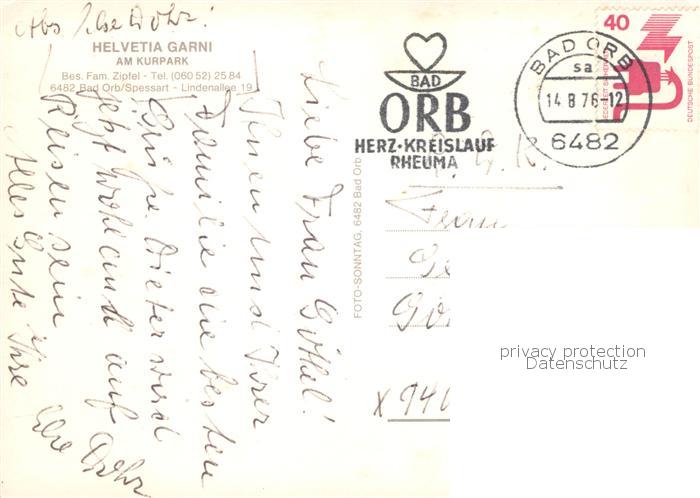 Abs Ilse Dohr!
HELVETIA GARNI
AM KURPARK
Bes. Fam. Zipfel - Tel. (060 52) 25 84
6482 Bad Orb/Spessart - Lindenallee 19
Liebe Frau Göthel!
Ihnen und Ihrer
Familie die besten
Grüße. Dieter wird
jetzt wohl auch auf
Reisen sein
Alles Gute Ihre
Ilse Dohr
FOTO-SONNTAG, 6482 Bad Orb
BAD
ORB
HERZ-KREISLAUF
RHEUMA
BAD ORB
sa
14.8.76-12
6482
40
JEDERZEIT SICHERHEIT
DEUTSCHE BUNDESPOST
Frau
Gö
X 940
privacy protection
Datenschutz